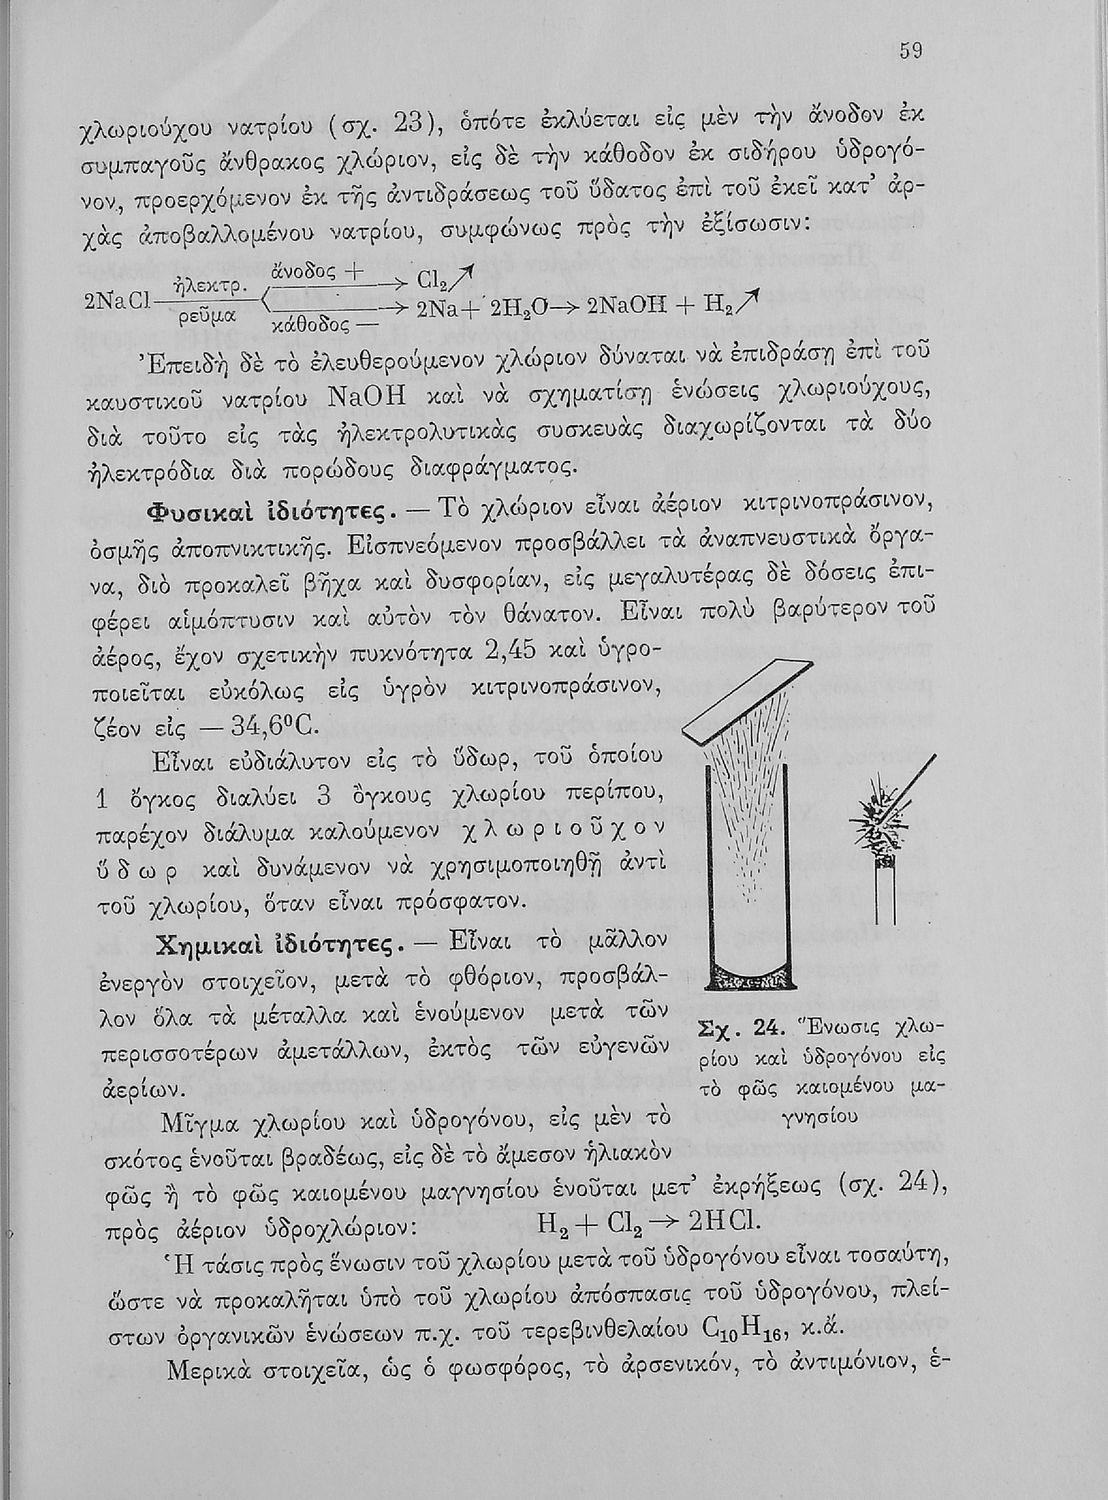 59
χλωριούχου νατρίου (σχ. 23), ὁπότε ἐκλύεται εἰς μὲν τὴν ἄνοδον ἐκ
συμπαγοῦς ἄνθρακος χλώριον, εἰς δὲ τὴν κάθοδον ἐκ σιδήρου ὑδρογό-
νον, προερχόμενον ἐκ τῆς ἀντιδράσεως τοῦ ὕδατος ἐπὶ τοῦ ἐκεῖ κατ’ ἀρ-
χὰς ἀποβαλλομένου νατρίου, συμφώνως πρὸς τὴν ἐξίσωσιν:
ἠλεκτρ. ἄνοδος + → Cl₂↗
2NaCl
ρεῦμα κάθοδος — → 2Na + 2H₂O → 2NaOH + H₂↗
Ἐπειδὴ δὲ τὸ ἐλευθερούμενον χλώριον δύναται νὰ ἐπιδράσῃ ἐπὶ τοῦ
καυστικοῦ νατρίου NaOH καὶ νὰ σχηματίσῃ ἑνώσεις χλωριούχους,
διὰ τοῦτο εἰς τὰς ἠλεκτρολυτικὰς συσκευὰς διαχωρίζονται τὰ δύο
ἠλεκτρόδια διὰ πορώδους διαφράγματος.
Φυσικαὶ ἰδιότητες. — Τὸ χλώριον εἶναι ἀέριον κιτρινοπράσινον,
ὀσμῆς ἀποπνικτικῆς. Εἰσπνεόμενον προσβάλλει τὰ ἀναπνευστικὰ ὄργα-
να, διὸ προκαλεῖ βῆχα καὶ δυσφορίαν, εἰς μεγαλυτέρας δὲ δόσεις ἐπι-
φέρει αἱμόπτυσιν καὶ αὐτὸν τὸν θάνατον. Εἶναι πολὺ βαρύτερον τοῦ
ἀέρος, ἔχον σχετικὴν πυκνότητα 2,45 καὶ ὑγρο-
ποιεῖται εὐκόλως εἰς ὑγρὸν κιτρινοπράσινον,
ζέον εἰς — 34,6⁰C.
Εἶναι εὐδιάλυτον εἰς τὸ ὕδωρ, τοῦ ὁποίου
1 ὄγκος διαλύει 3 ὄγκους χλωρίου περίπου,
παρέχον διάλυμα καλούμενον χλωριοῦχον
ὕδωρ καὶ δυνάμενον νὰ χρησιμοποιηθῇ ἀντὶ
τοῦ χλωρίου, ὅταν εἶναι πρόσφατον.
Χημικαὶ ἰδιότητες. — Εἶναι τὸ μᾶλλον
ἐνεργὸν στοιχεῖον, μετὰ τὸ φθόριον, προσβάλ-
λον ὅλα τὰ μέταλλα καὶ ἑνούμενον μετὰ τῶν
περισσοτέρων ἀμετάλλων, ἐκτὸς τῶν εὐγενῶν
ἀερίων.
Μῖγμα χλωρίου καὶ ὑδρογόνου, εἰς μὲν τὸ
σκότος ἑνοῦται βραδέως, εἰς δὲ τὸ ἄμεσον ἡλιακὸν
φῶς ἢ τὸ φῶς καιομένου μαγνησίου ἑνοῦται μετ’ ἐκρήξεως (σχ. 24),
πρὸς ἀέριον ὑδροχλώριον: H₂ + Cl₂ → 2HCl.
Ἡ τάσις πρὸς ἕνωσιν τοῦ χλωρίου μετὰ τοῦ ὑδρογόνου εἶναι τοσαύτη,
ὥστε νὰ προκαλῆται ὑπὸ τοῦ χλωρίου ἀπόσπασις τοῦ ὑδρογόνου, πλεί-
στων ὀργανικῶν ἑνώσεων π.χ. τοῦ τερεβινθελαίου C₁₀H₁₆, κ.ἄ.
Μερικὰ στοιχεῖα, ὡς ὁ φωσφόρος, τὸ ἀρσενικόν, τὸ ἀντιμόνιον, ἑ-
Σχ. 24. Ἕνωσις χλω-
ρίου καὶ ὑδρογόνου εἰς
τὸ φῶς καιομένου μα-
γνησίου